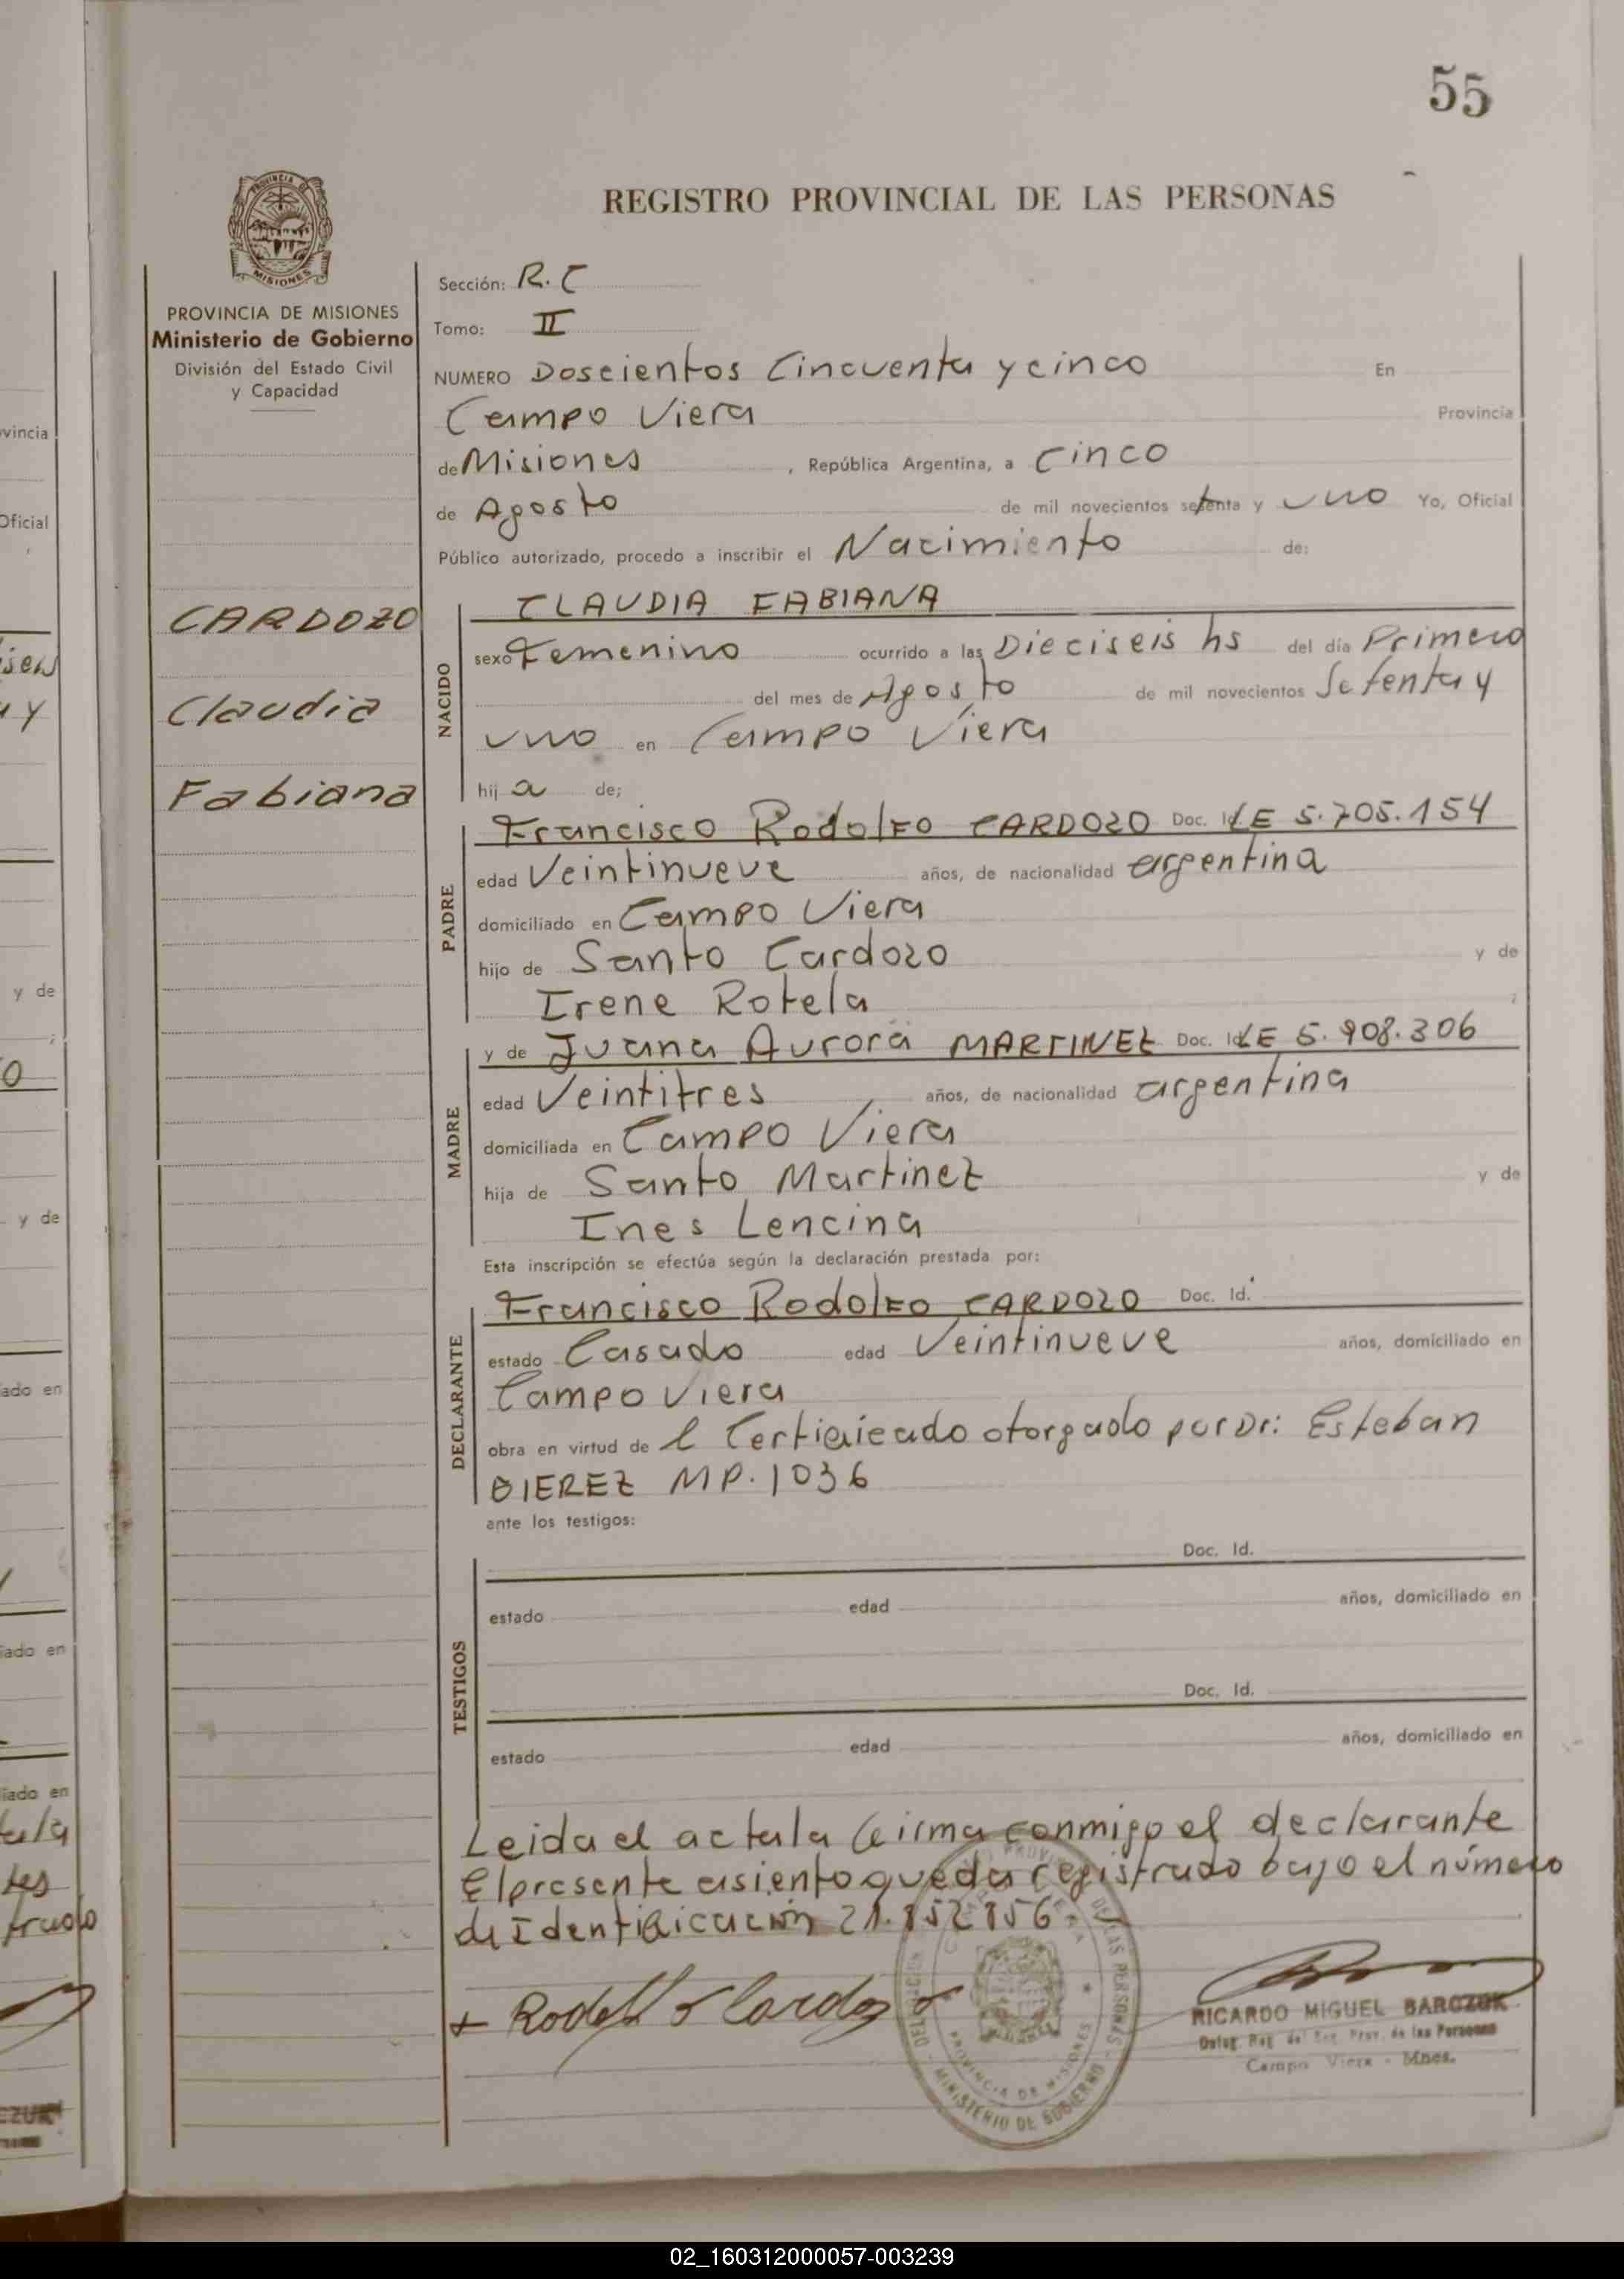 55
REGISTRO PROVINCIAL DE LAS PERSONAS
PROVINCIA DE
MISIONES
PROVINCIA DE MISIONES
Ministerio de Gobierno
División del Estado Civil
y Capacidad
CARDOZO
Claudia
Fabiana
Sección: R.C
Tomo: II
NUMERO Doscientos Cincuenta y cinco En
Campo Viera Provincia
de Misiones, República Argentina, a Cinco
de Agosto de mil novecientos setenta y uno Yo, Oficial
Público autorizado, procedo a inscribir el Nacimiento de:
NACIDO
CLAUDIA FABIANA
sexo Femenino ocurrido a las Dieciseis hs del día Primero
del mes de Agosto de mil novecientos Setenta y
uno en Campo Viera
hij a de;
PADRE
Francisco Rodolfo CARDOZO Doc. Id LE 5.705.154
edad Veintinueve años, de nacionalidad argentina
domiciliado en Campo Viera
hijo de Santo Cardozo y de
Irene Rotela ;
MADRE
y de Juana Aurora MARTINEZ Doc. Id LE 5.908.306
edad Veintitres años, de nacionalidad argentina
domiciliada en Campo Viera
hija de Santo Martinez y de
Ines Lencina
Esta inscripción se efectúa según la declaración prestada por:
DECLARANTE
Francisco Rodolfo CARDOZO Doc. Id.
estado Casado edad Veintinueve años, domiciliado en
Campo Viera
obra en virtud de l Certificado otorgado por Dr: Esteban
MP. 1036
ante los testigos:
TESTIGOS
Doc. Id.
estado edad años, domiciliado en
Doc. Id.
estado edad años, domiciliado en
Leida el acta la firma conmigo el declarante
El presente asiento queda registrado bajo el número
de Identificación 21.852856
Rodolfo Cardozo
PROVINCIA DE MISIONES
MINISTERIO DE GOBIERNO
RICARDO MIGUEL BARCZUK
Deleg. Reg. del Reg. Prov. de las Personas
Campo Viera - Mnes.
02_160312000057-003239